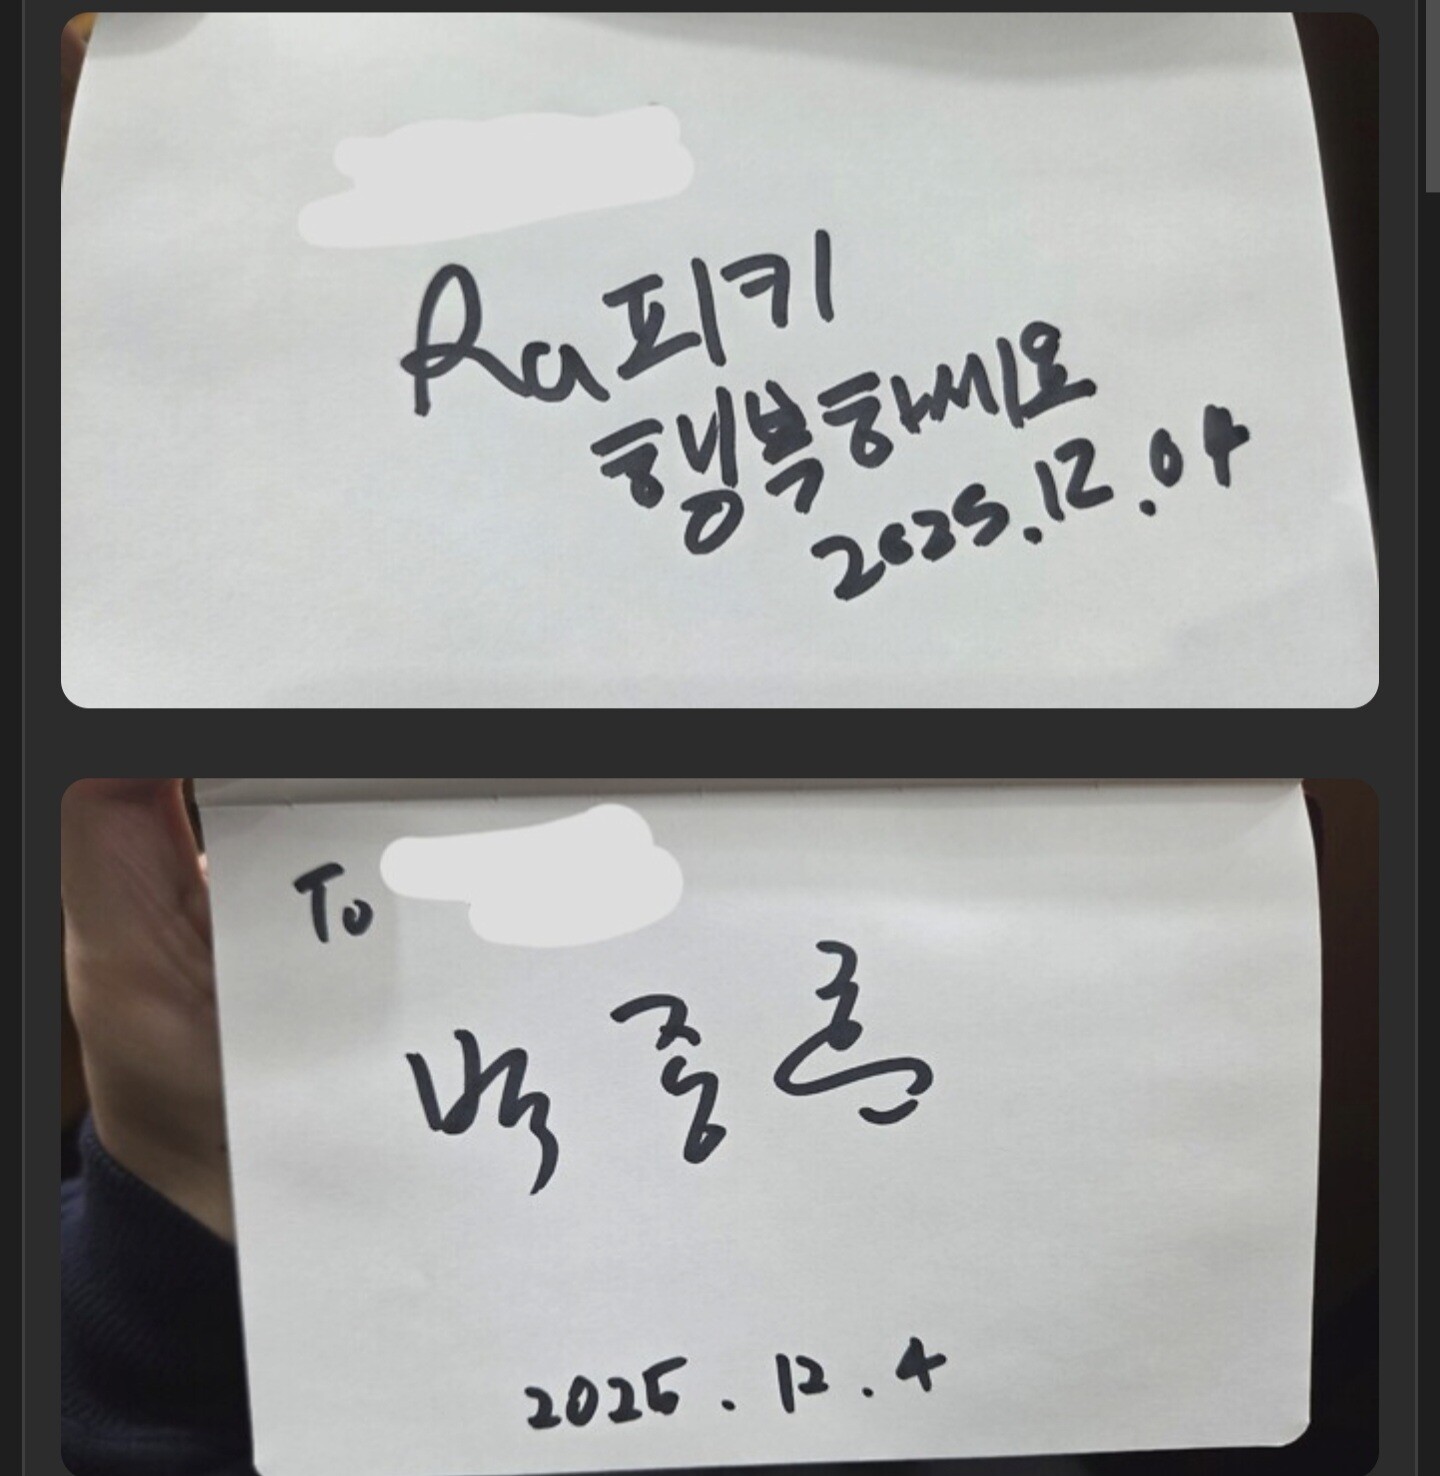 Ra피키
행복하세요
2025.12.04
To
박종훈
2025.12.4